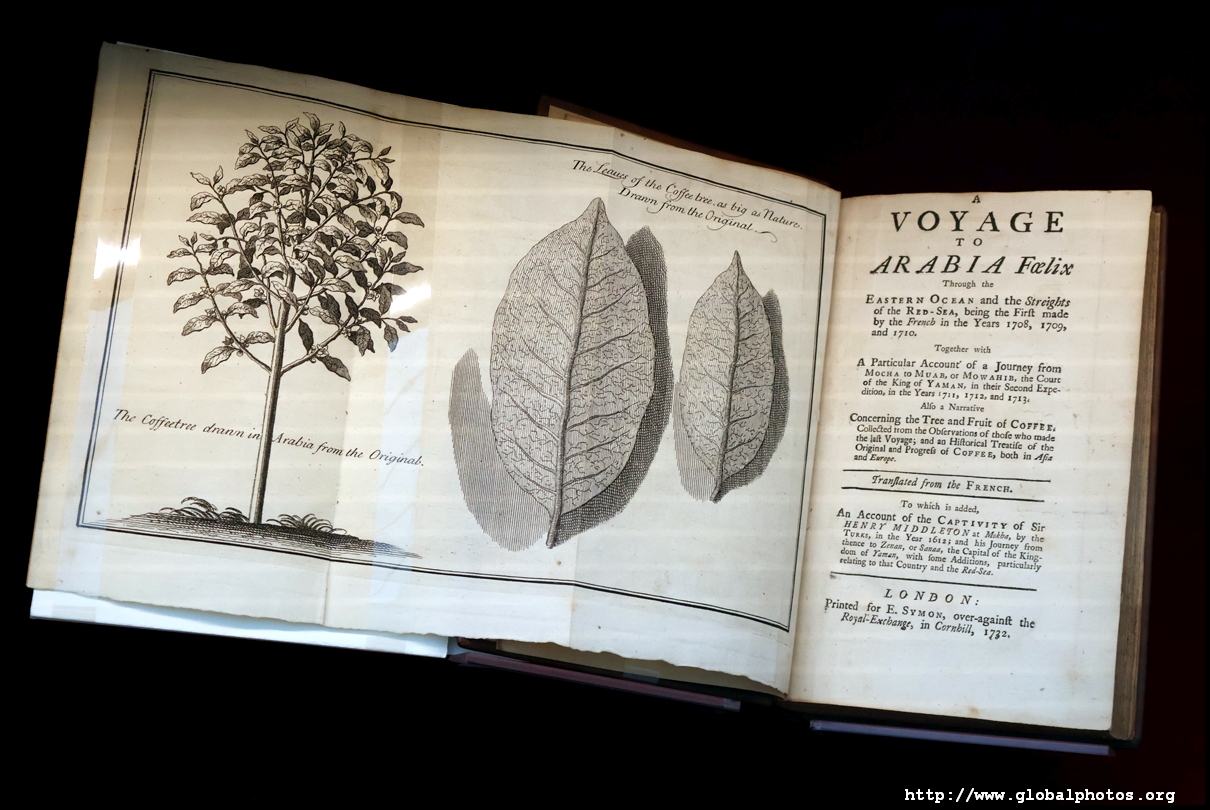 The Leaves of the Coffee tree. as big as Nature.
Drawn from the Original.
The Coffeetree drawn in Arabia from the Original.
A
VOYAGE
TO
ARABIA Fœlix
Through the
EASTERN OCEAN and the Streights
of the RED-SEA, being the Firſt made
by the French in the Years 1708, 1709,
and 1710.
Together with
A Particular Account of a Journey from
MOCHA to MUAB, or MOWAHIB, the Court
of the King of YAMAN, in their Second Expe-
dition, in the Years 1711, 1712, and 1713.
Alſo a Narrative
Concerning the Tree and Fruit of COFFEE,
Collected from the Obſervations of thoſe who made
the laſt Voyage; and an Hiſtorical Treatiſe of the
Original and Progreſs of COFFEE, both in Aſia
and Europe.
Tranſlated from the FRENCH.
To which is added,
An Account of the CAPTIVITY of Sir
HENRY MIDDLETON at Mokha, by the
TURKS, in the Year 1612; and his Journey from
thence to Zenan, or Sanaa, the Capital of the King-
dom of Yaman, with ſome Additions, particularly
relating to that Country and the Red-Sea.
LONDON:
Printed for E. SYMON, over-againſt the
Royal-Exchange, in Cornhill, 1732.
http://www.globalphotos.org